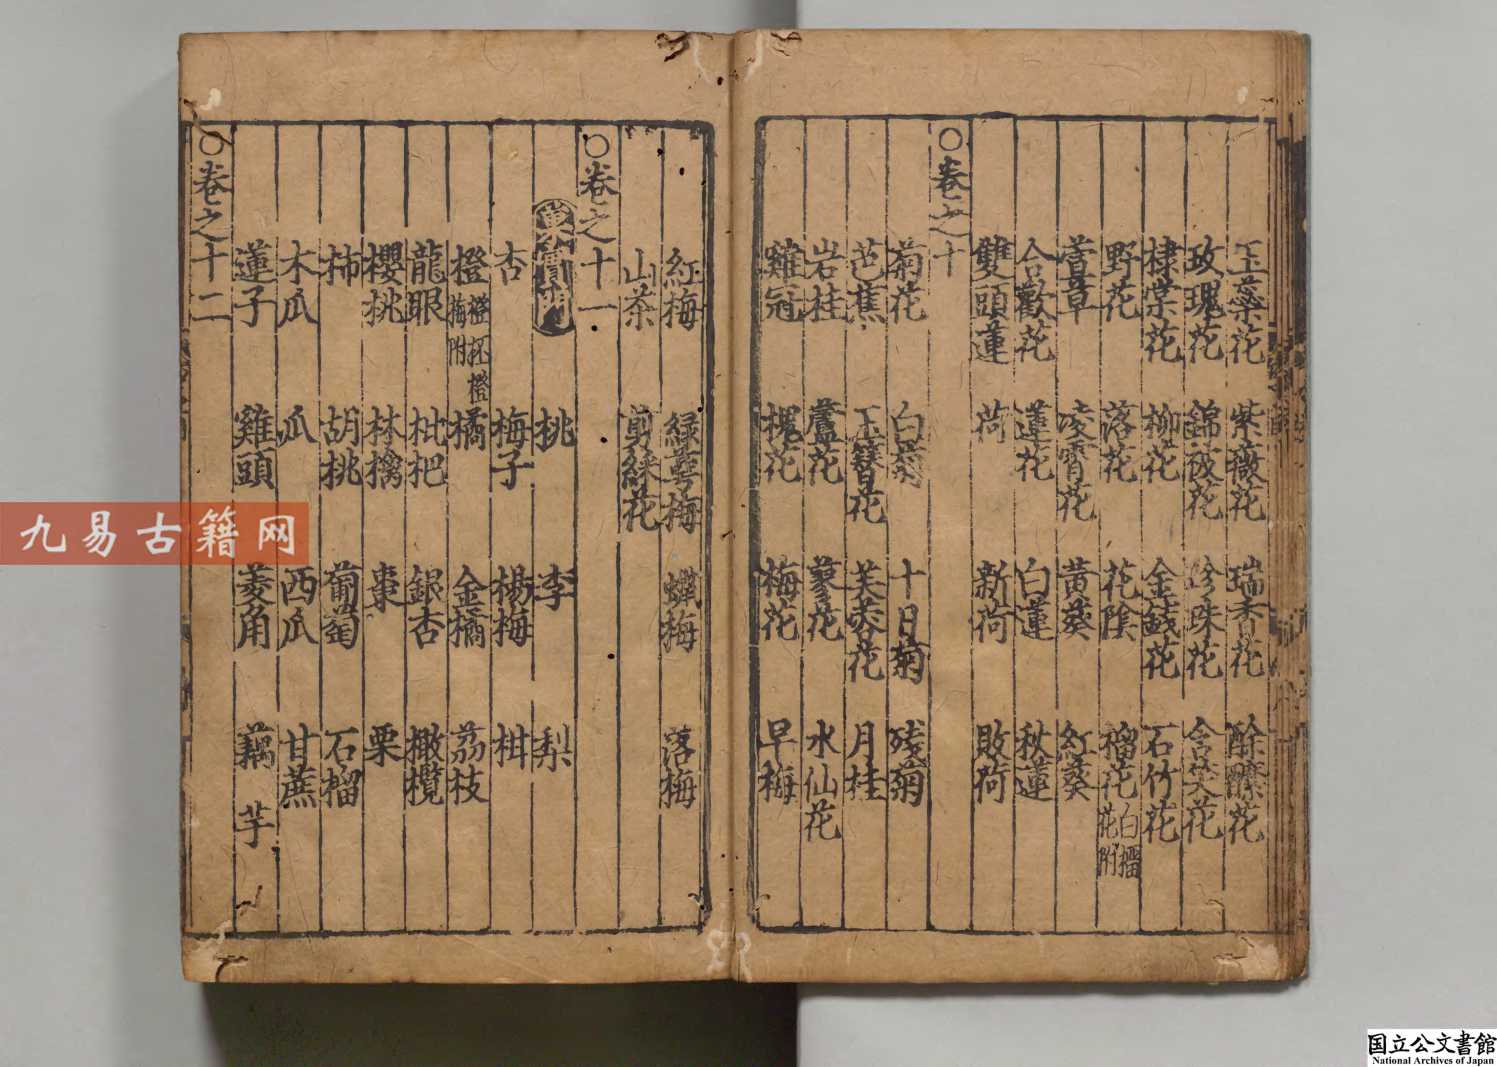 玉蘂花 紫薇花 瑞香花 酴醾花
玫瑰花 錦被花 珍珠花 含笑花
棣棠花 柳花 金錢花 石竹花
野花 落花 花陰 榴花 白榴花附
萱草 凌霄花 黄葵 紅葵
合歡花 蓮花 白蓮 秋蓮
雙頭蓮 荷 新荷 敗荷
○卷之十
菊花 白菊 十月菊 残菊
芭蕉 玉簪花 芙蓉花 月桂
岩桂 蘆花 蓼花 水仙花
雞冠 槐花 梅花 早梅
紅梅 緑萼梅 蠟梅 落梅
山茶 剪綵花
○卷之十一
菓實門 桃 李 梨
杏 梅子 楊梅 柑
橙 橙抳橙梅附 橘 金橘 荔枝
龍眼 枇杷 銀杏 橄欖
櫻桃 林檎 棗 栗
柿 胡桃 葡萄 石榴
木瓜 瓜 西瓜 甘蔗
蓮子 雞頭 菱角 藕 芋
○卷之十二
九易古籍网
国立公文書館
National Archives of Japan